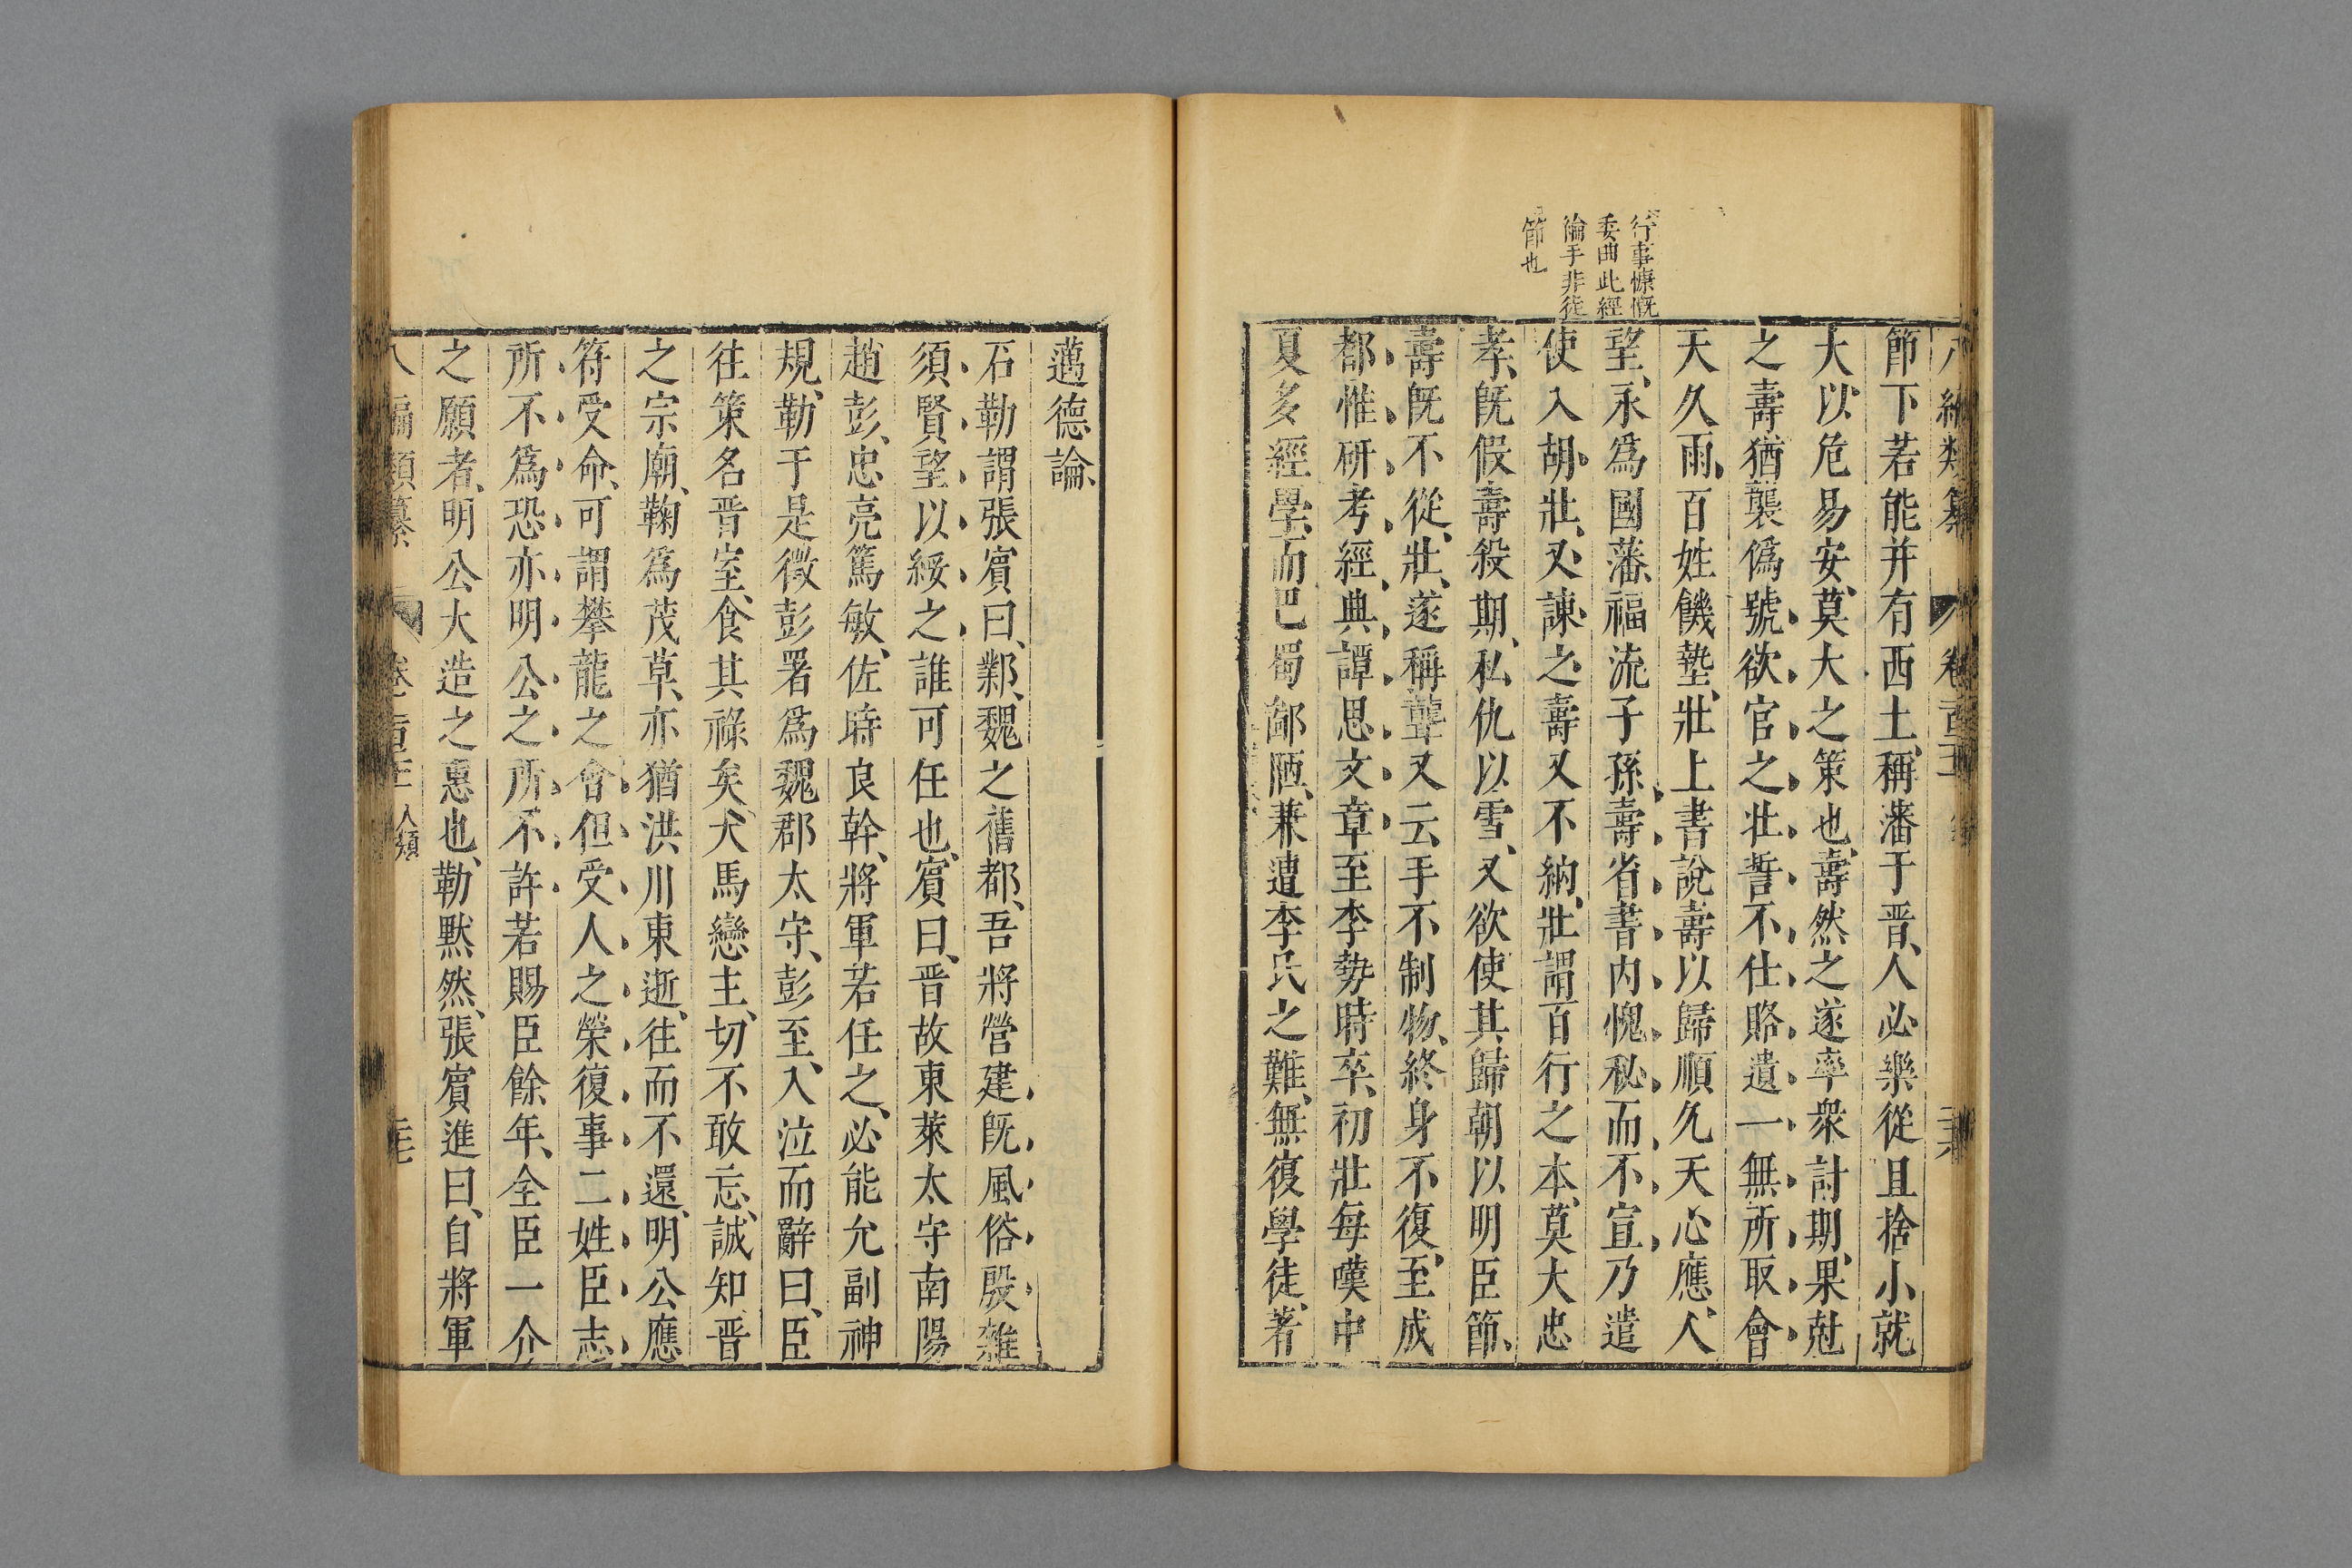 行事慷慨
委曲此經
綸手非徒
節也
節下若能并有西土稱藩于晋人必樂從且捨小就
大以危易安莫大之策也壽然之遂率衆討期果尅
之壽猶襲僞號欲官之壯誓不仕賂遺一無所取會
天久雨百姓饑墊壯上書說壽以歸順允天心應人
望永爲國藩福流子孫壽省書内愧秘而不宣乃遣
使入胡壯又諫之壽又不納壯謂百行之本莫大忠
孝旣假壽殺期私仇以雪又欲使其歸朝以明臣節
壽旣不從壯遂稱聾又云手不制物終身不復至成
都惟研考經典譚思文章至李勢時卒初壯每嘆中
夏多經學而巴蜀鄙陋兼遭李氏之難無復學徒著
邁德論
石勒謂張賓曰鄴魏之舊都吾將營建旣風俗殷雜
須賢望以綏之誰可任也賓曰晋故東萊太守南陽
趙彭忠亮篤敏佐時良幹將軍若任之必能允副神
規勒于是徵彭署爲魏郡太守彭至入泣而辭曰臣
往策名晋室食其祿矣犬馬戀主切不敢忘誠知晋
之宗廟鞠爲茂草亦猶洪川東逝往而不還明公應
符受命可謂攀龍之會但受人之榮復事二姓臣志
所不爲恐亦明公之所不許若賜臣餘年全臣一介
之願者明公大造之惠也勒默然張賓進曰自將軍
八編類纂 人類